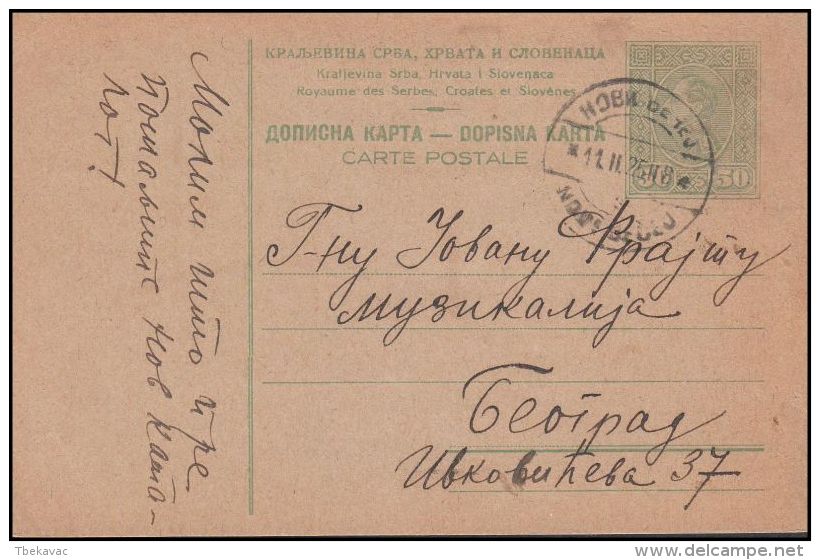 КРАЉЕВИНА СРБА, ХРВАТА И СЛОВЕНАЦА
Kraljevina Srba, Hrvata i Slovenaca
Royaume des Serbes, Croates et Slovènes
ДОПИСНА КАРТА — DOPISNA KARTA
CARTE POSTALE
НОВИ БЕЧЕЈ
*11.II.25
NOVI BEČEJ
50
Г-ну Јовану Фрајту
музикалија
Београд
Ивковићева 37
Молим што пре
пошаљите нов ката-
лог!
Tbekavac
delcampe.net